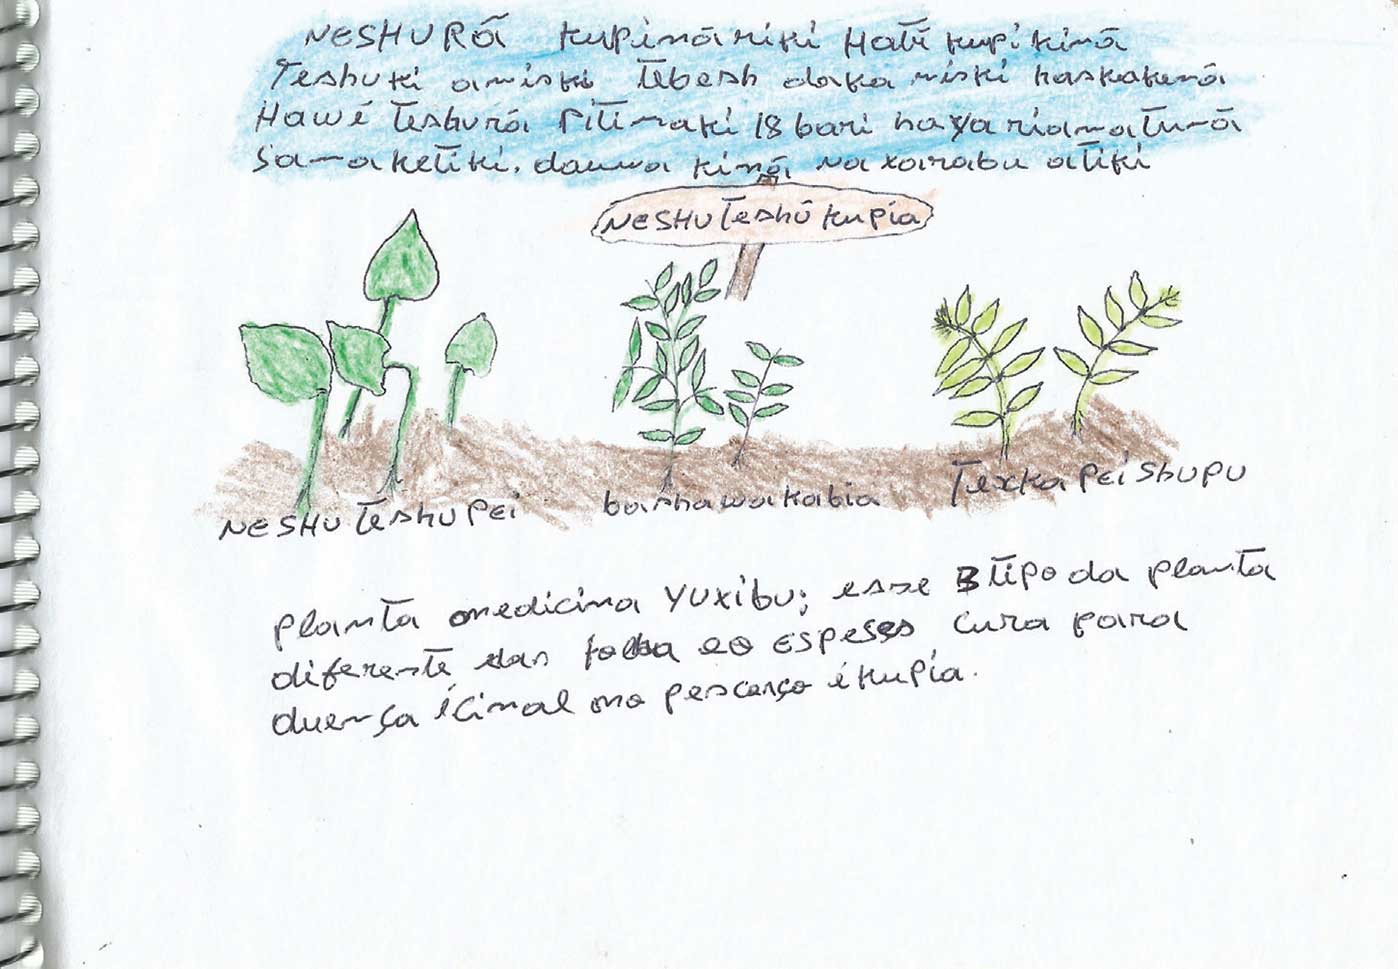 NESHURÃ kupinãriki Hatĩ kupi kinã
Teshuki amiski Tebesh daka miski haskakenã
Hawẽ Teshurã Pitimaki 18 bari haya riamatunã
Samaketiki. dauwa kinã na xarabu atiki
NESHU Teshũ kupia
NESHU Teshu Pei
bashawakabia
Texka Pei Shupu
planta medicina YUXIBU; esse 3 tipo da planta
diferente das folha eo espeses cura para
duença icinal no pescoço é kupia.